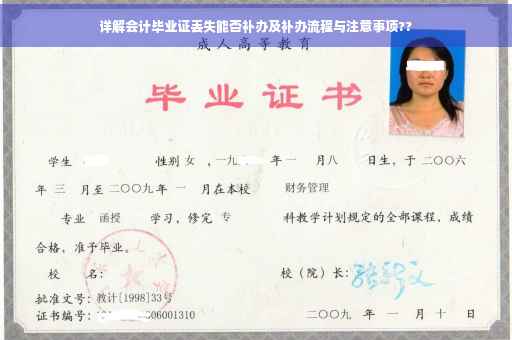 详解会计毕业证丢失能否补办及补办流程与注意事项??
成人高等教育
毕业证书
学生 性别 女 ，一九 年 一 月八 日生，于 二〇〇六
年 三 月至 二〇〇九 年 一 月在本校 财务管理
专业 函授 学习，修完 专 科教学计划规定的全部课程，成绩
合格，准予毕业。
校 名： 校（院）长：
批准文号：教计[1998]33号
证书编号： 06001310 二〇〇九 年 一 月 十 日